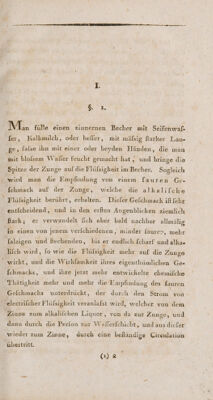 I.
§. 1.
Man fülle einen zinnernen Becher mit Seifenwas-
ser, Kalkmilch, oder besser, mit mässig starker Lau-
ge, fasse ihn mit einer oder beyden Händen, die man
mit blossem Wasser feucht gemacht hat, und bringe die
Spitze der Zunge auf die Flüssigkeit im Becher. Sogleich
wird man die Empfindung von einem sauren Ge-
schmack auf der Zunge, welche die alkalische
Flüssigkeit berührt, erhalten. Dieser Geschmack ist sehr
entscheidend, und in den ersten Augenblicken ziemlich
stark; er verwandelt sich aber bald nachher allmälig
in einen von jenem verschiedenen, minder sauren, mehr
salzigen und stechenden, bis er endlich scharf und alka-
lisch wird, so wie die Flüssigkeit mehr auf die Zunge
wirkt, und die Wirksamkeit ihres eigenthümlichen Ge-
schmacks, und ihre jetzt mehr entwickelte chemische
Thätigkeit mehr und mehr die Empfindung des sauren
Geschmacks unterdrückt, der durch den Strom von
electrischer Flüssigkeit veranlasst wird, welcher von dem
Zinne zum alkalischen Liquor, von da zur Zunge, und
dann durch die Person zur Wasserschicht, und aus dieser
wieder zum Zinne, durch eine beständige Circulation
übertritt.
(1) 2